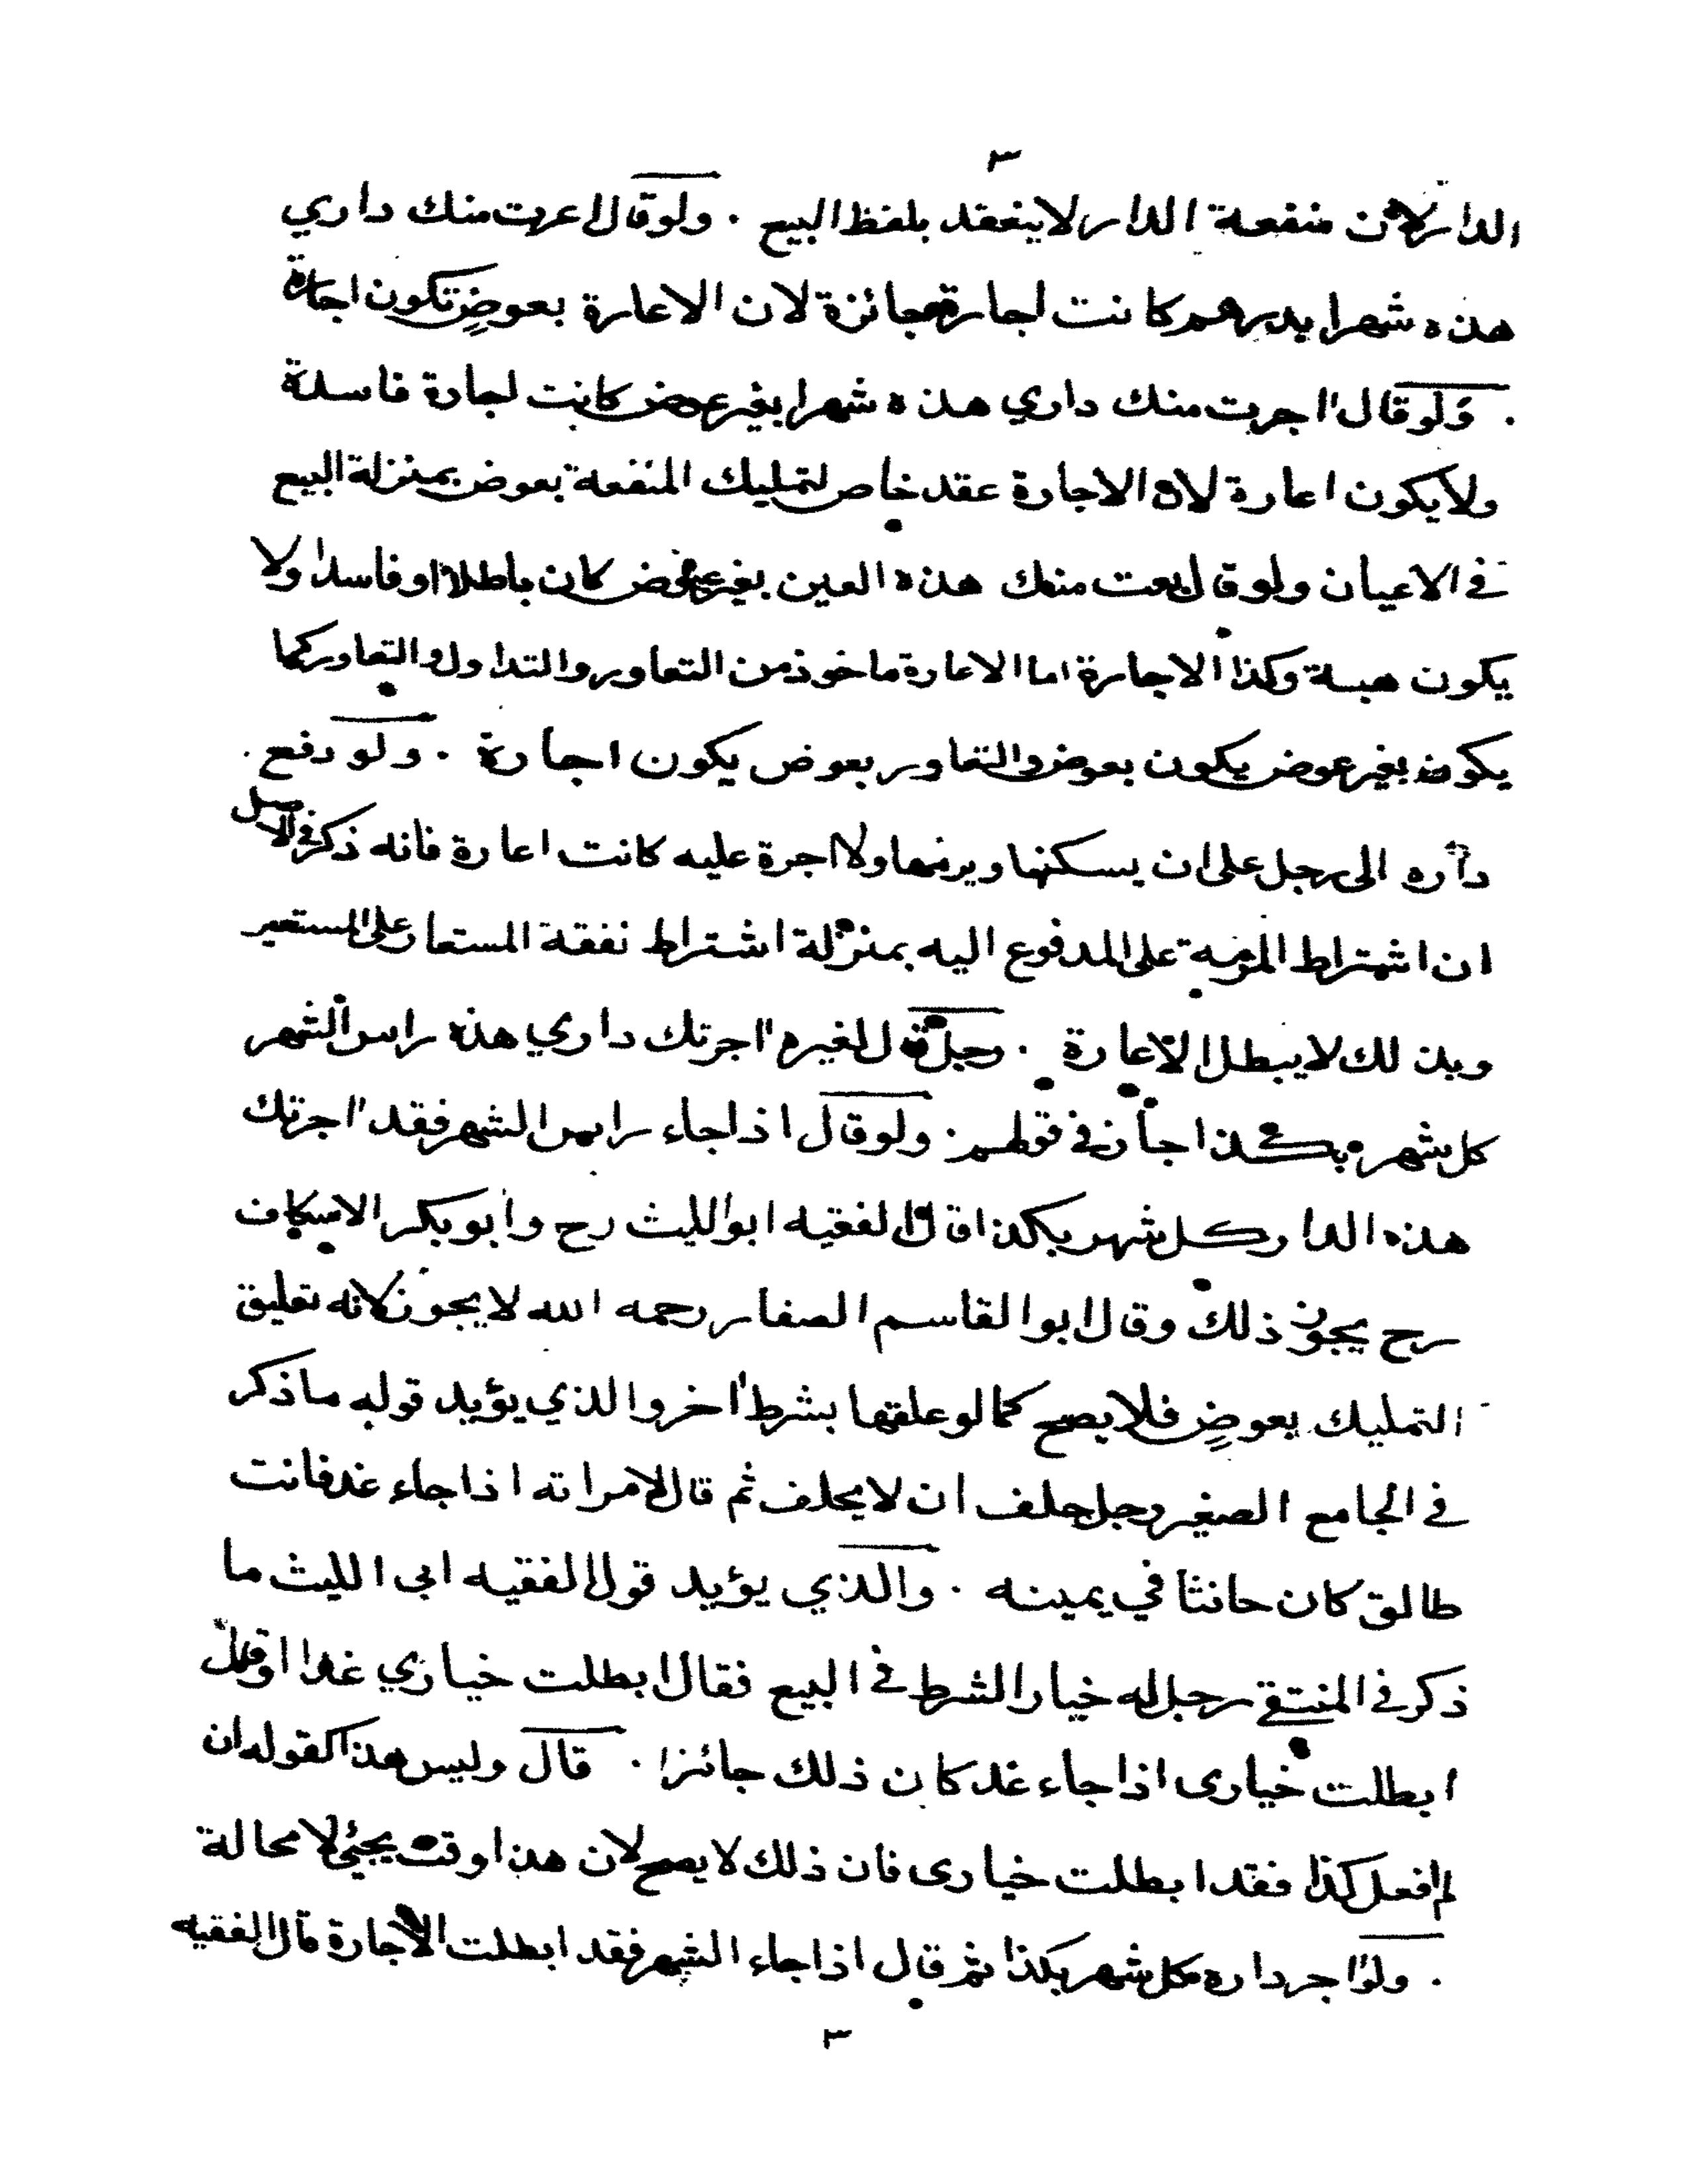 ٣
الدار لان منفعة الدار لا ينعقد بلفظ البيع . ولو قال اعرت منك داري
هذه شهرا بدرهم كانت اجارة جائزة لان الاعارة بعوض تكون اجارة
. ولو قال اجرت منك داري هذه شهرا بغير عوض كانت اجارة فاسدة
ولا يكون اعارة لان الاجارة عقد خاص لتمليك المنفعة بعوض بمنزلة البيع
في الاعيان ولو قال بعت منك هذه العين بغير عوض كان باطلا او فاسدا ولا
يكون هبة وكذا الاجارة اما الاعارة ماخوذ من التعاور والتداول والتعاور كما
يكون بغير عوض يكون بعوض والتعاور بعوض يكون اجارة . ولو دفع
داره الى رجل على ان يسكنها ويرمها ولا اجرة عليه كانت اعارة فانه ذكر في الاصل
ان اشتراط المرمة على المدفوع اليه بمنزلة اشتراط نفقة المستعار على المستعير
وبذلك لا يبطل الاعارة . رجل قال لغيره اجرتك داري هذه راس الشهر
كل شهر بكذا جاز في قولهم . ولو قال اذا جاء راس الشهر فقد اجرتك
هذه الدار كل شهر بكذا قال الفقيه ابو الليث رح وابو بكر الاسكاف
رح يجوز ذلك وقال ابو القاسم الصفار رحمه الله لا يجوز لانه تعليق
التمليك بعوض فلا يصح كما لو علقها بشرط اخر والذي يؤيد قوله ما ذكر
في الجامع الصغير رجل حلف ان لا يحلف ثم قال لامراته اذا جاء غد فانت
طالق كان حانثا في يمينه . والذي يؤيد قول الفقيه ابي الليث ما
ذكر في المنتقى رجل له خيار الشرط في البيع فقال ابطلت خياري غدا او قال
ابطلت خياري اذا جاء غد كان ذلك جائزا . قال وليس هذا كقوله ان
لم افعل كذا فقد ابطلت خياري فان ذلك لا يصح لان هذا وقت يجئ لا محالة
. ولو اجر داره كل شهر بكذا ثم قال اذا جاء الشهر فقد ابطلت الاجارة قال الفقيه
٣